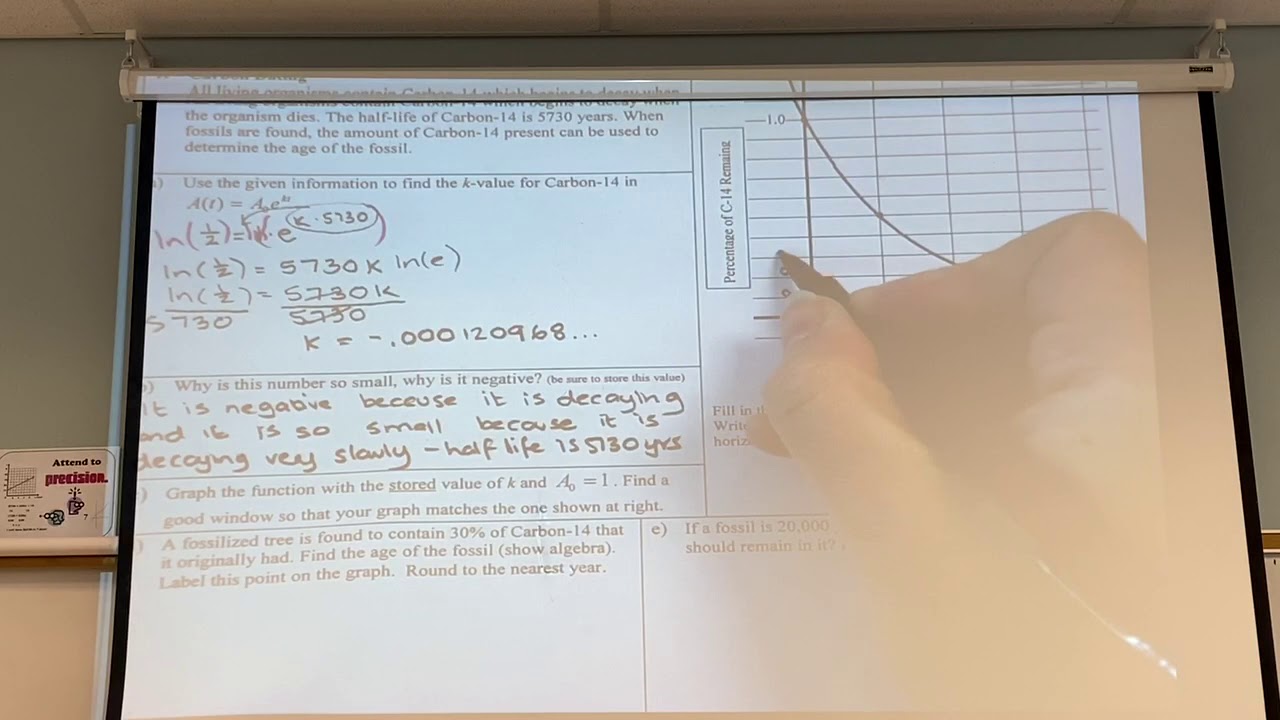 Carbon Dating
All living organisms contain Carbon-14 which begins to decay when
the organism dies. The half-life of Carbon-14 is 5730 years. When
fossils are found, the amount of Carbon-14 present can be used to
determine the age of the fossil.
) Use the given information to find the k-value for Carbon-14 in
A(t) = A₀e^kt
ln(½)= e^(k·5730)
ln(½) = 5730k ln(e)
ln(½) = 5730k
5730 5730
k = -.000120968...
) Why is this number so small, why is it negative? (be sure to store this value)
it is negative because it is decaying
and it is so small because it is
decaying very slowly - half life is 5730 yrs
) Graph the function with the stored value of k and A₀ = 1. Find a
good window so that your graph matches the one shown at right.
) A fossilized tree is found to contain 30% of Carbon-14 that
it originally had. Find the age of the fossil (show algebra).
Label this point on the graph. Round to the nearest year.
e) If a fossil is 20,000
should remain in it?
1.0
Percentage of C-14 Remaing
Fill in
Write
horiz
Attend to
precision.